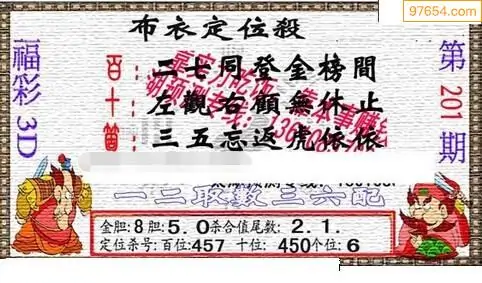 97654.com
布衣定位殺
福彩3D
第201期
百:二七同登金榜間
十:左觀右顧無休止
個:三五忘返虎依依
一二取數三六配
金胆:8胆:5.0杀合值尾数:2.1.
定位杀号:百位:457 十位:450个位:6